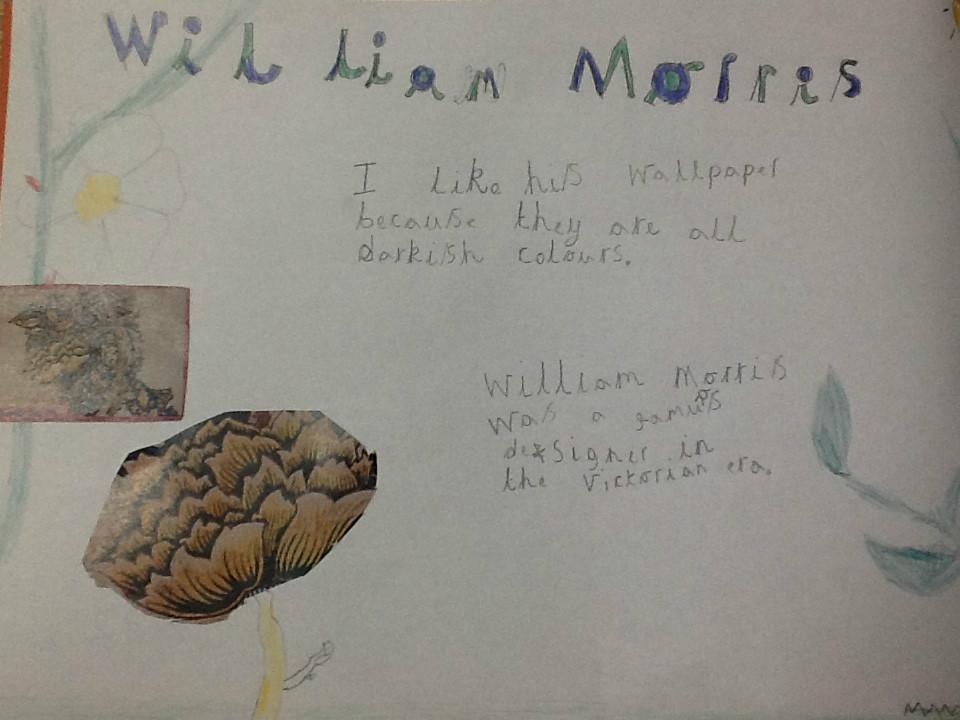 William Morris
I like his wallpaper
because they are all
darkish colours.
William Morris
was a famus
designer in
the Victorian era.